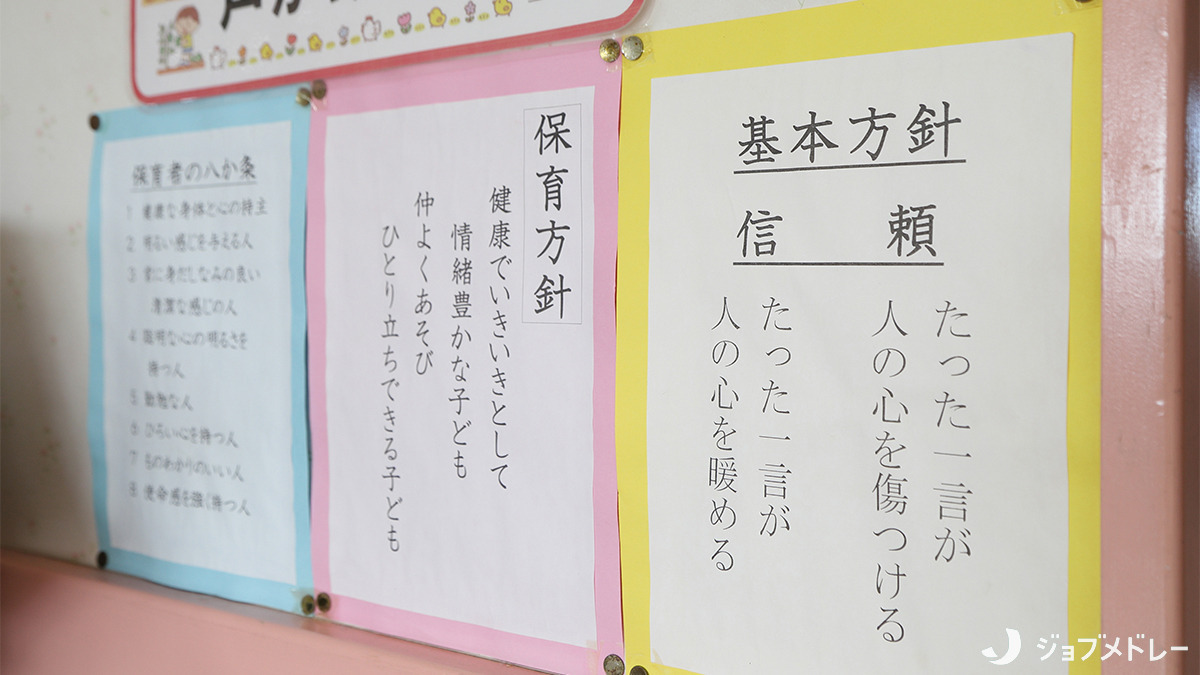 基本方針
信頼
たった一言が
人の心を傷つける
たった一言が
人の心を暖める
保育方針
健康でいきいきとして
情緒豊かな子ども
仲よくあそび
ひとり立ちできる子ども
保育者の八か条
1 健康な身体と心の持主
2 明るい感じを与える人
3 常に身だしなみの良い
清潔な感じの人
4 聡明な心の明るさを
持つ人
5 勤勉な人
6 ひろい心を持つ人
7 ものわかりのいい人
8 使命感を強く持つ人
ジョブメドレー